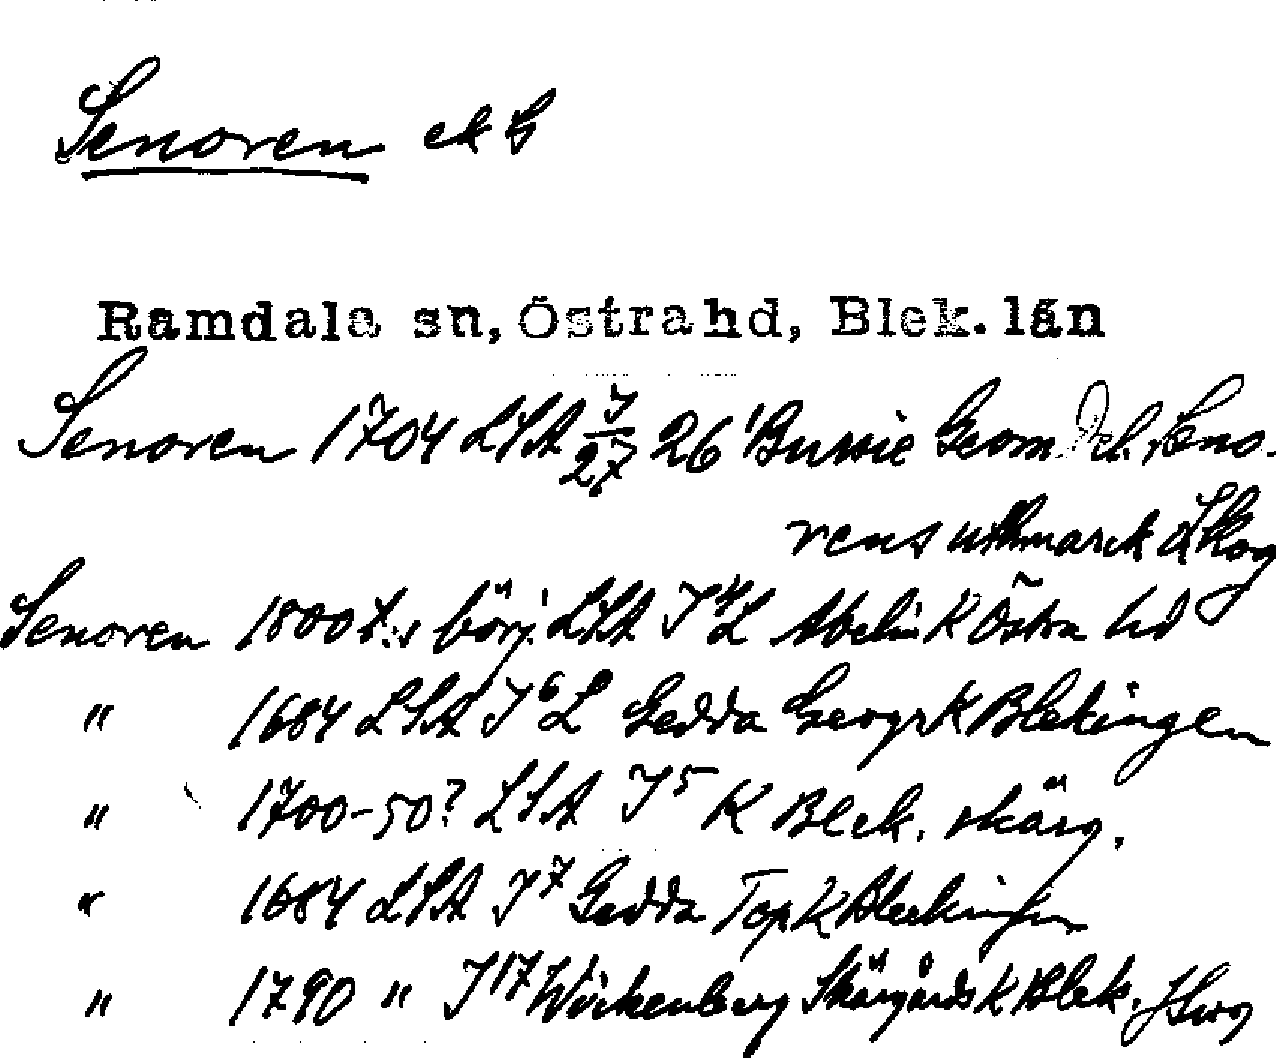 Senoren ek G
Ramdala sn, Östrahd, Blek. län
Senoren 1704 LSA J/27 26' Geom. Del. Seno-
rens uthmarck Skog
Senoren 1800 t. börj. LSA J4L Abelin K Östra hd
" 1684 LSA J6L Gedda Geogr K Blekingen
" 1700-50? LSA J5 K Bleck. skärg.
" 1684 LSA J7 Gedda Top K Bleckingen
" 1790 " J17 Wirkenberg Skärgårds K Blek.